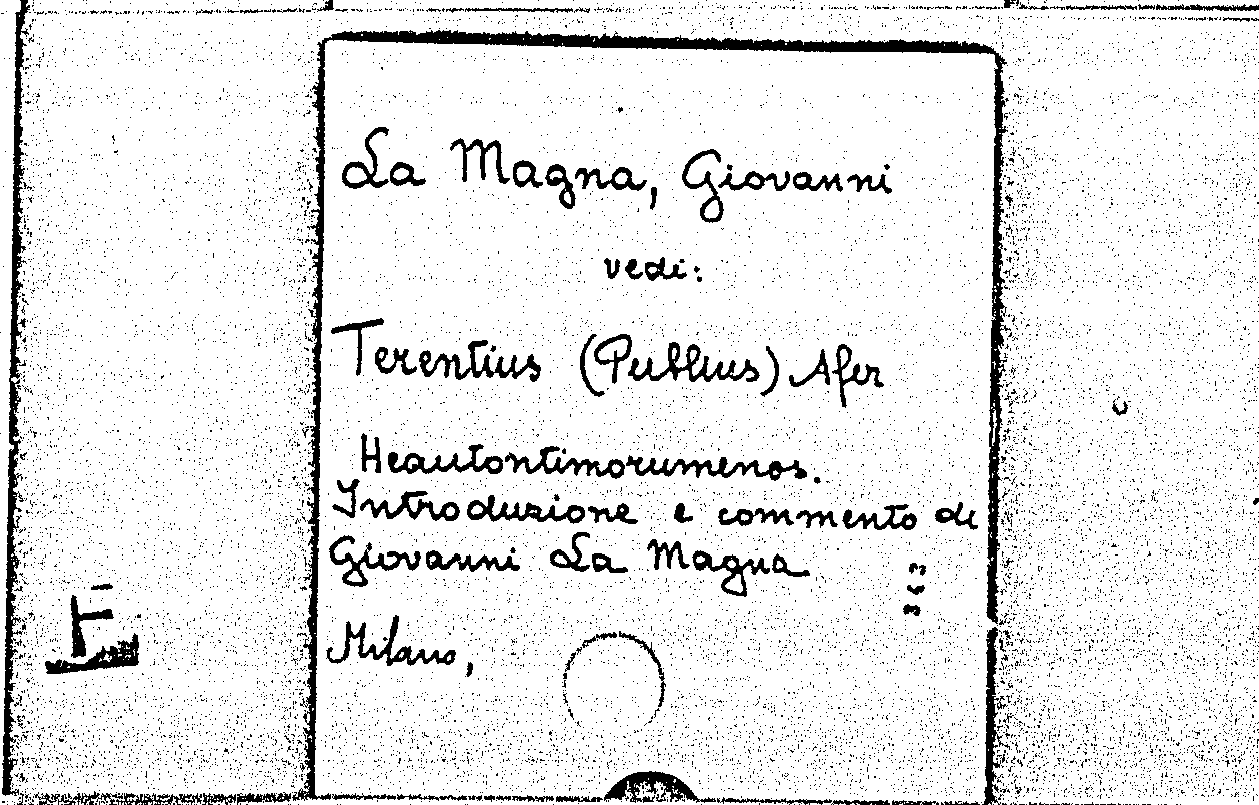 La Magna, Giovanni
vedi:
Terentius (Publius) Afer
Heautontimorumenos.
Introduzione e commento di
Giovanni La Magna
Milano,